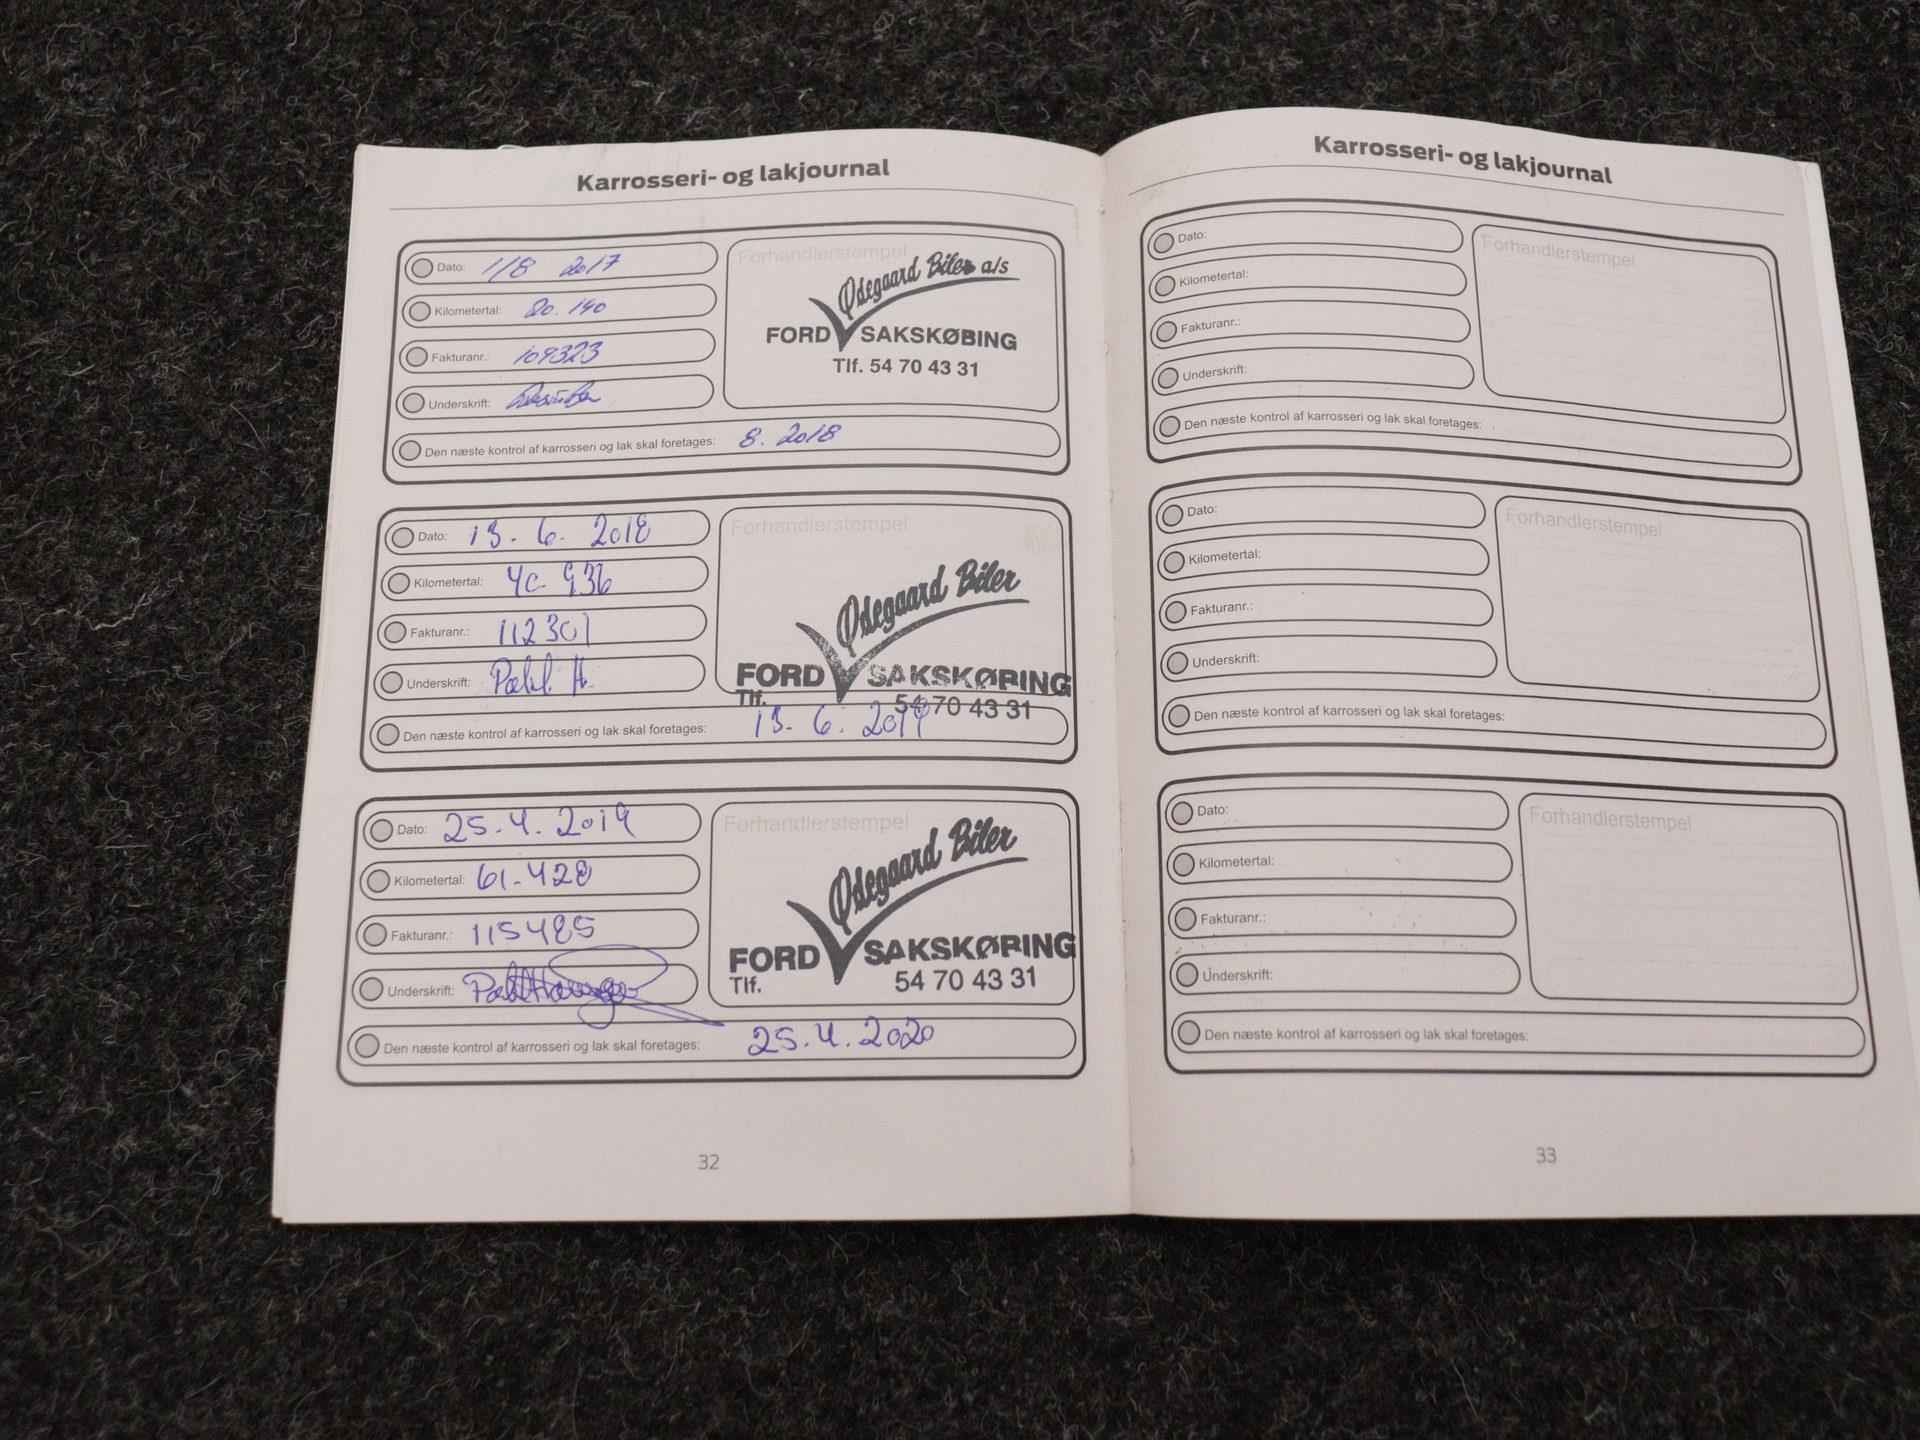 Karrosseri- og lakjournal
Dato: 1/8 2017
Kilometertal: 20.190
Fakturanr.: 109323
Underskrift:
Forhandlerstempel
Ødegaard Biler a/s
FORD SAKSKØBING
Tlf. 54 70 43 31
Den næste kontrol af karrosseri og lak skal foretages: 8. 2018
Dato: 13. 6. 2018
Kilometertal: 40 936
Fakturanr.: 112301
Underskrift:
Forhandlerstempel
Ødegaard Biler
FORD SAKSKØBING
Tlf. 54 70 43 31
Den næste kontrol af karrosseri og lak skal foretages: 13. 6. 2019
Dato: 25.4.2019
Kilometertal: 61-428
Fakturanr.: 115485
Underskrift:
Forhandlerstempel
Ødegaard Biler
FORD SAKSKØBING
Tlf. 54 70 43 31
Den næste kontrol af karrosseri og lak skal foretages: 25.4.2020
32
Karrosseri- og lakjournal
Dato:
Kilometertal:
Fakturanr.:
Underskrift:
Forhandlerstempel
Den næste kontrol af karrosseri og lak skal foretages:
Dato:
Kilometertal:
Fakturanr.:
Underskrift:
Forhandlerstempel
Den næste kontrol af karrosseri og lak skal foretages:
Dato:
Kilometertal:
Fakturanr.:
Underskrift:
Forhandlerstempel
Den næste kontrol af karrosseri og lak skal foretages:
33